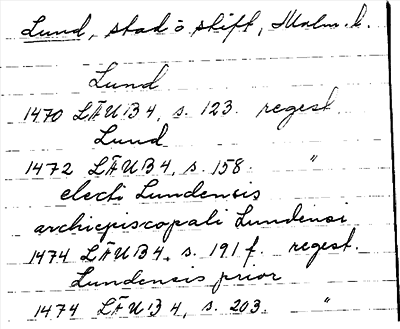 Lund, stad o stift, Malm. l.
Lund
1470 LÄUB 4, s. 123. regest
Lund
1472 LÄUB 4, s. 158. "
electi Lundensis
archiepiscopali Lundensi
1474 LÄUB 4, s. 191 f. regest.
Lundensis prior
1474 LÄUB 4, s. 203. "